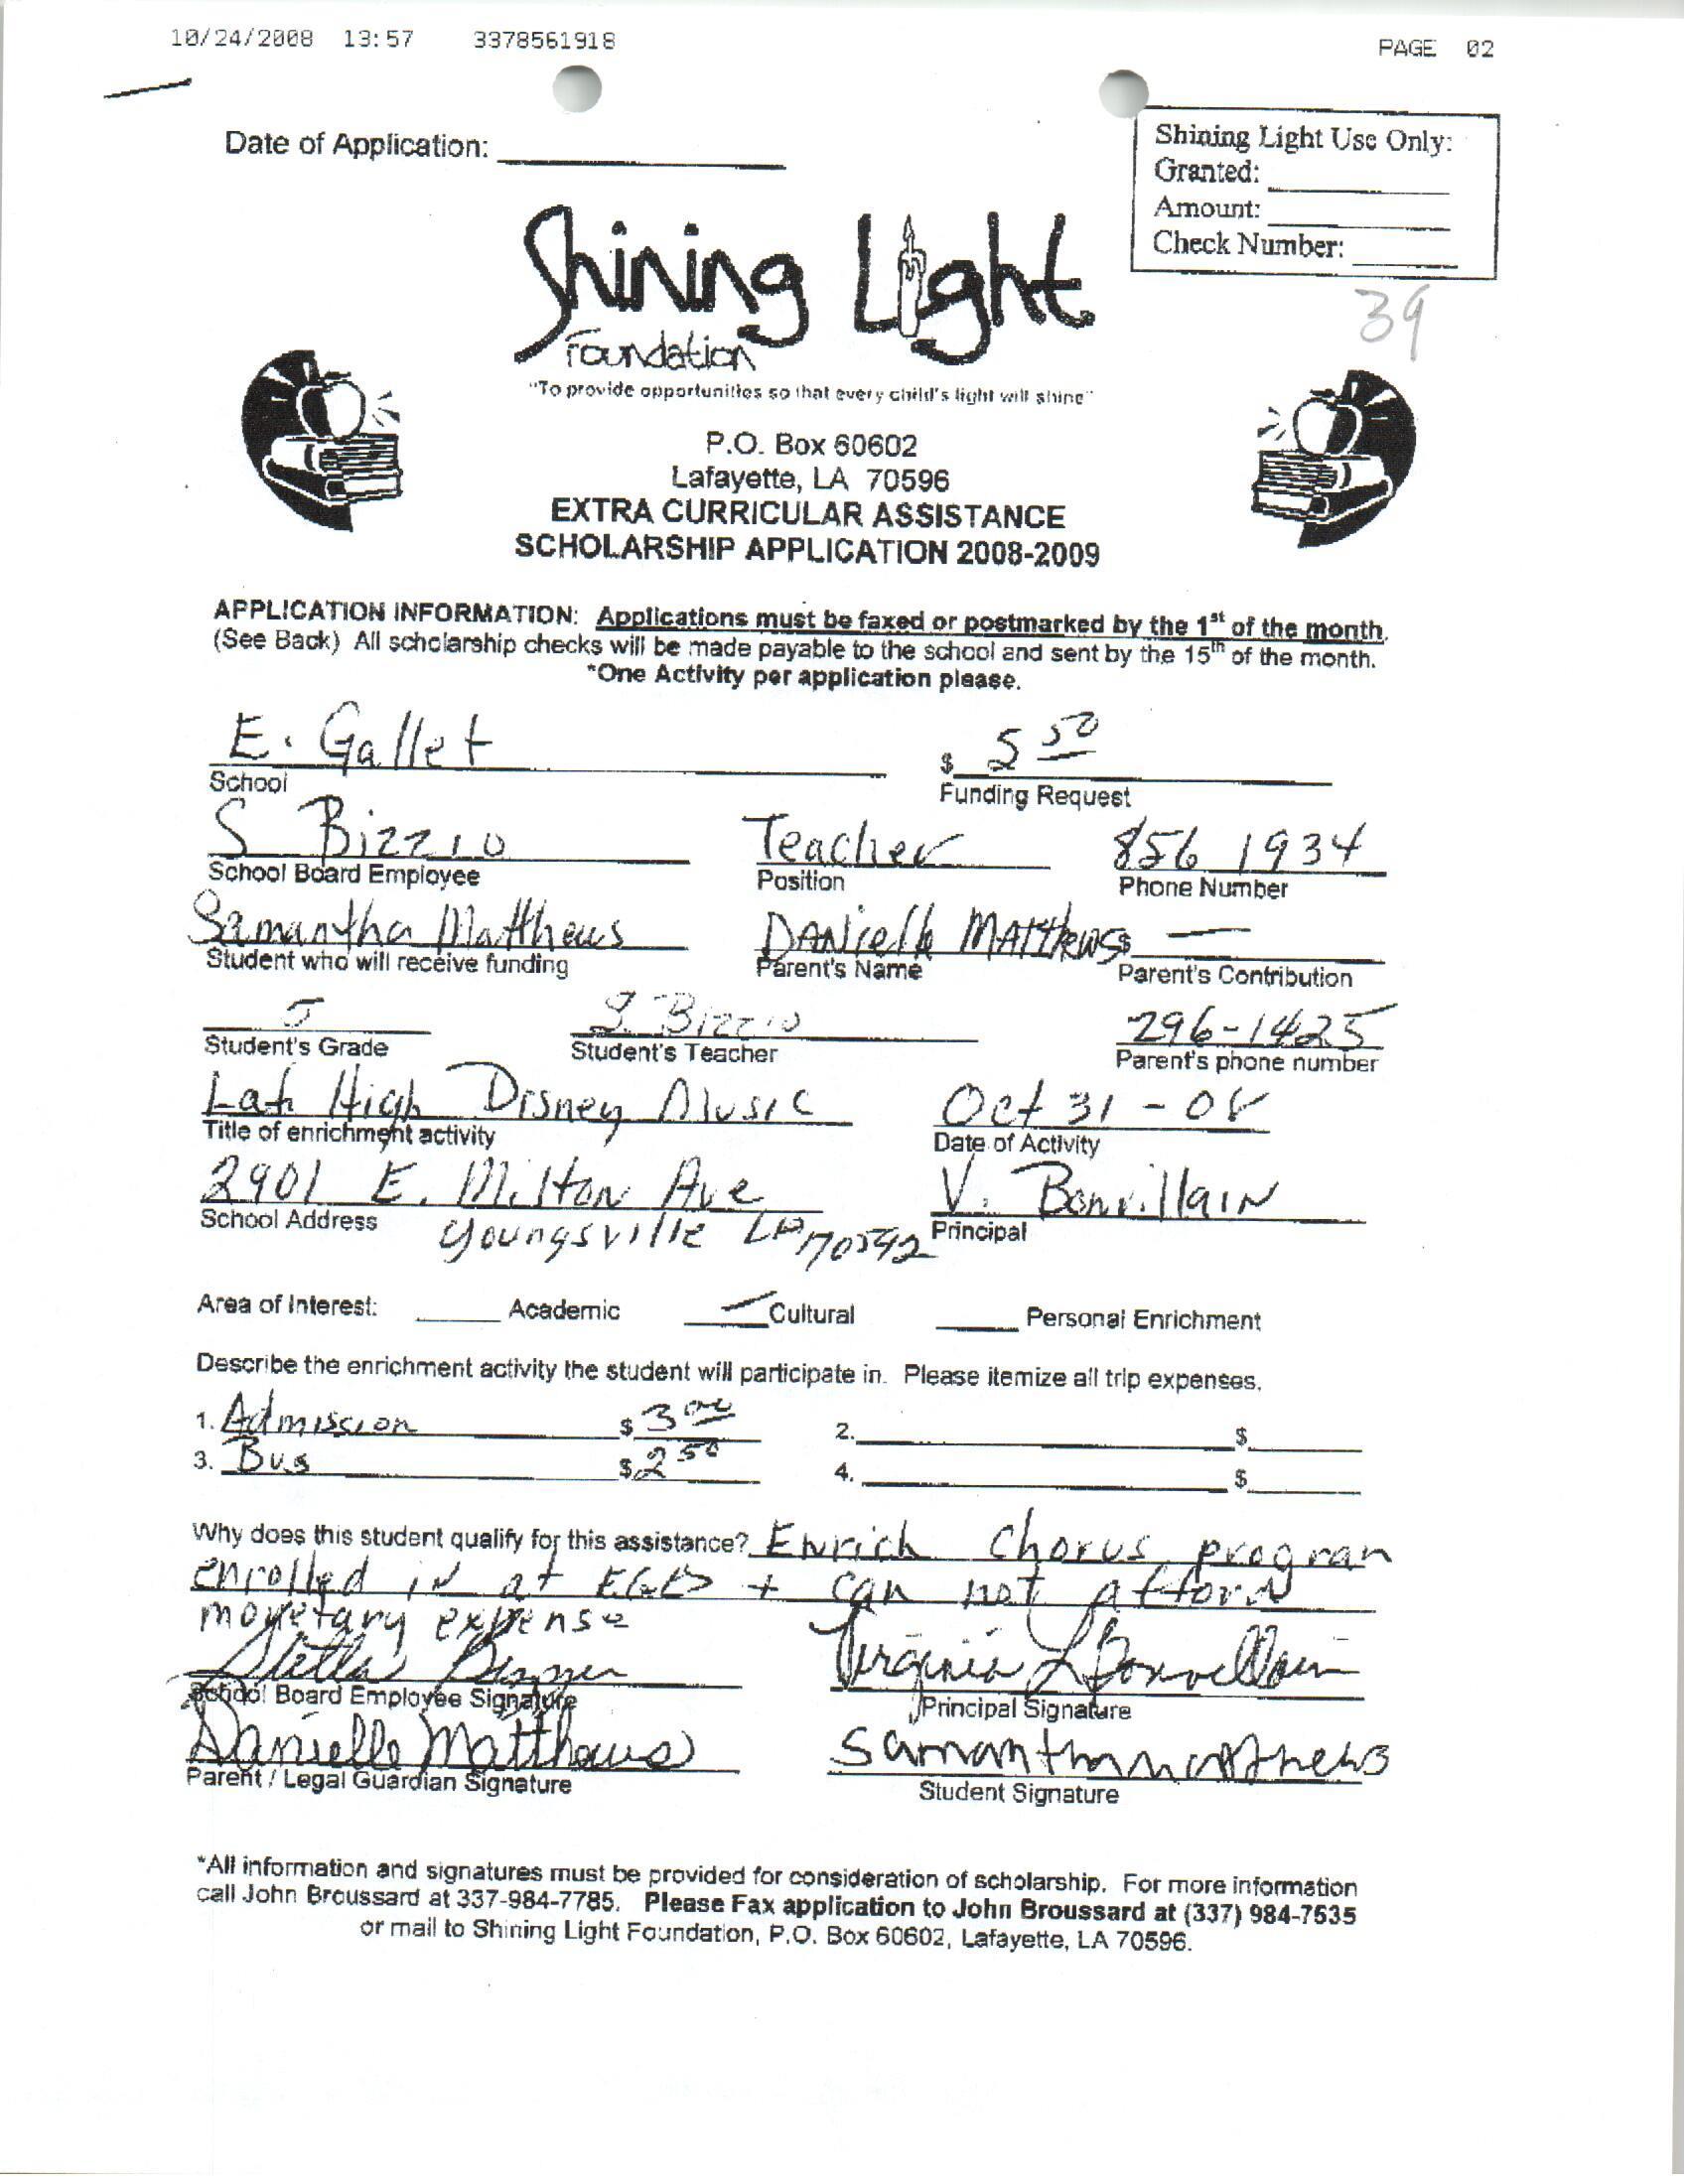 10/24/2008 13:57 3378561918 PAGE 02
Date of Application:
Shining Light Use Only:
Granted:
Amount:
Check Number:
39
Shining Light
Foundation
"To provide opportunities so that every child's light will shine"
P.O. Box 60602
Lafayette, LA 70596
EXTRA CURRICULAR ASSISTANCE
SCHOLARSHIP APPLICATION 2008-2009
APPLICATION INFORMATION: Applications must be faxed or postmarked by the 1st of the month.
(See Back) All scholarship checks will be made payable to the school and sent by the 15th of the month.
*One Activity per application please.
E. Gallet $ 5 50
School Funding Request
S Bizzio Teacher 856 1934
School Board Employee Position Phone Number
Samantha Matthews Danielle Matthews $ —
Student who will receive funding Parent's Name Parent's Contribution
5 S. Bizzio 296-1425
Student's Grade Student's Teacher Parent's phone number
Laf High Disney Music Oct 31 - 08
Title of enrichment activity Date of Activity
2901 E. Milton Ave V. Bonvillain
School Address Youngsville LA 70592 Principal
Area of Interest: Academic Cultural Personal Enrichment
Describe the enrichment activity the student will participate in. Please itemize all trip expenses.
1. Admission $ 3 00 2. $
3. Bus $ 2 50 4. $
Why does this student qualify for this assistance? Enrich Chorus program
enrolled in at EGES + can not afford
monetary expense
Stella Virginia L Bonvillain
School Board Employee Signature Principal Signature
Danielle Matthews Samantha matthews
Parent / Legal Guardian Signature Student Signature
*All information and signatures must be provided for consideration of scholarship. For more information
call John Broussard at 337-984-7785. Please Fax application to John Broussard at (337) 984-7535
or mail to Shining Light Foundation, P.O. Box 60602, Lafayette, LA 70596.